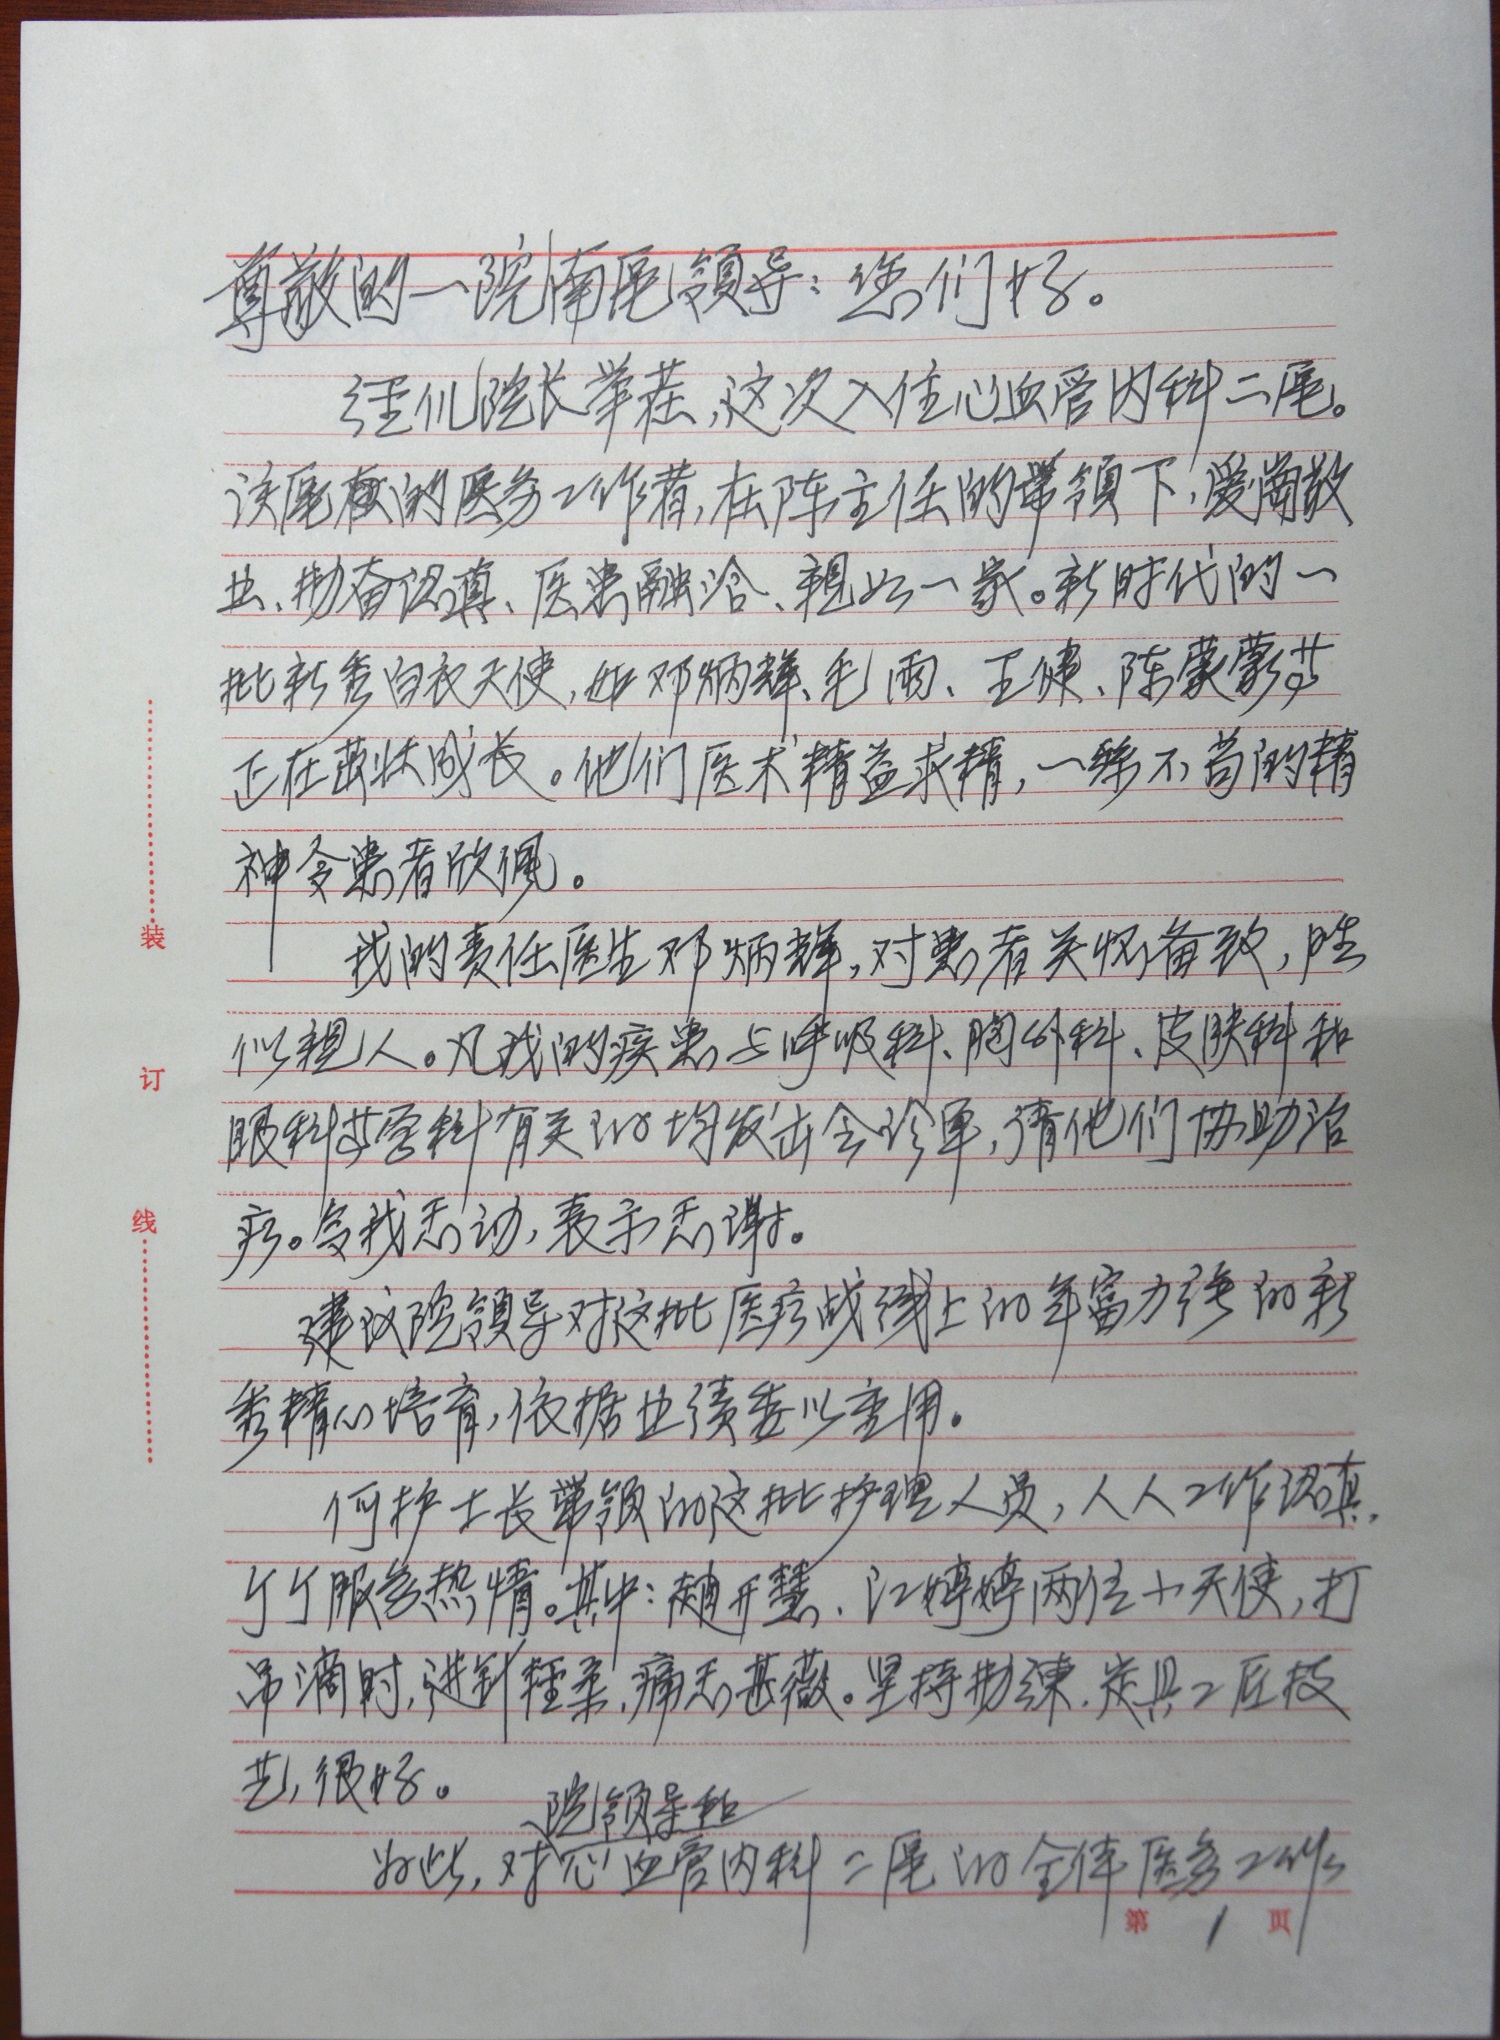 尊敬的一院南区领导：您们好。
经倪院长举荐，这次入住心血管内科二区。
该区域的医务工作者，在陈主任的带领下，爱岗敬
业、勤奋认真、医患融洽、亲如一家。新时代的一
批新秀白衣天使，如邓炳辉、毛雨、王健、陈蒙蒙等
正在茁壮成长。他们医术精益求精，一丝不苟的精
神令患者欣佩。
我的责任医生邓炳辉，对患者关怀备致，胜
似亲人。凡我的疾患与呼吸科、胸外科、皮肤科和
眼科等学科有关的均发出会诊单，请他们协助治
疗。令我感动，表示感谢。
建议院领导对这批医疗战线上的年富力强的新
秀精心培育，依据业绩委以重用。
何护士长带领的这批护理人员，人人工作认真，
个个服务热情。其中：赵开慧、江婷婷两位小天使，打
吊滴时，进针轻柔，痛感甚微。坚持勤练，炭具工匠技
艺，很好。
院领导和
为此，对心血管内科二区的全体医务工作
第1页
装
订
线